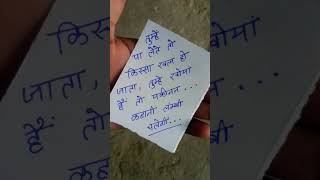 तुम्हें
पा लेते तो
किस्सा खत्म हो
जाता, तुम्हें खोया
हैं तो यकीनन...
कहानी लम्बी
चलेगी...